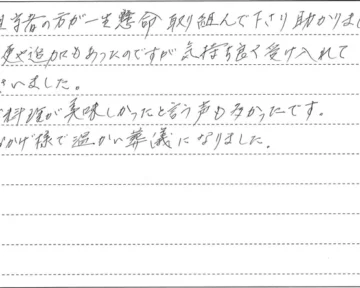 当者の方が一生懸命取り組んで下さり助かりまし
更や追加もあったのですが気持ち良く受け入れて
さいました。
料理が美味しかったと言う声も多かったです。
かげ様で温かい葬儀になりました。